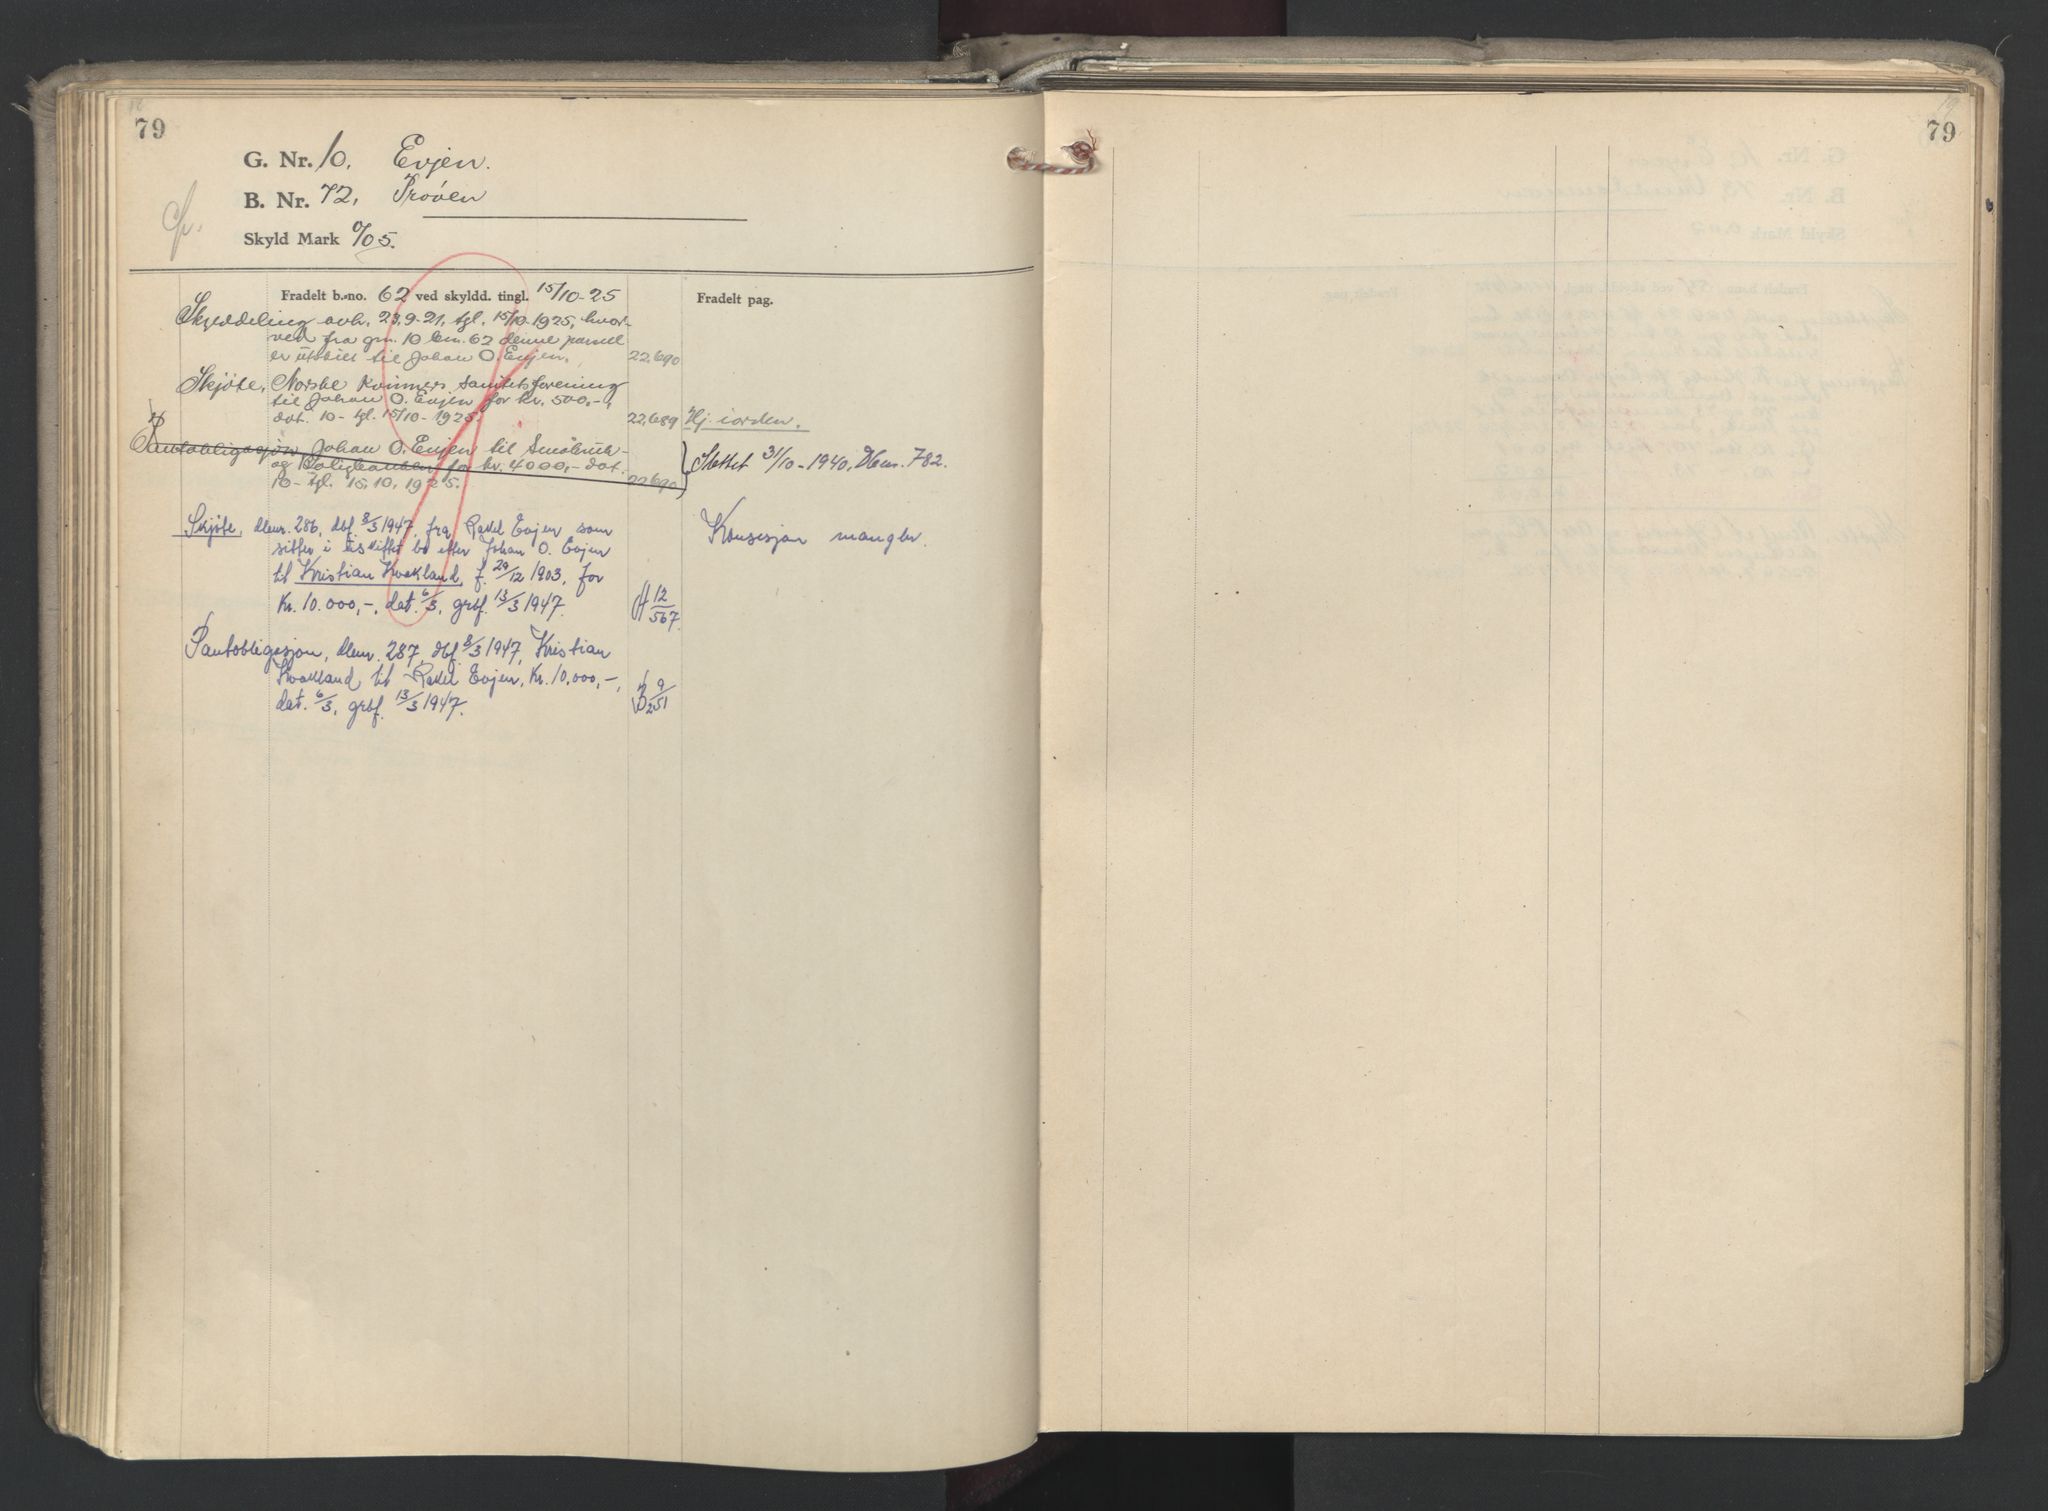 79
G. Nr. 10. Evjen.
B. Nr. 72, Prøven
Skyld Mark 0/05.
Fradelt b.-no. 62 ved skyldd. tingl. 15/10-25
Fradelt pag.
Skylddeling avh. 23.9-21, tgl. 15/10-1925, hvor-
ved fra gn. 10 bn. 62 denne parsell
er utskilt til Johan O. Evjen. 22,690
Skjøte, Norske Kvinners Sanitetsforening
til Johan O. Evjen for kr. 500,-,
dat. 10- tgl. 15/10-1925. 22,689 Hj. i orden.
Pantobligasjon Johan O. Evjen til Småbruk-
og Boligbanken for kr. 4000,- dat.
10- tgl. 15.10.1925. 22,690
Slettet 31/10-1940, Dbnr. 782.
Skjøte, dbnr. 286, dbf. 8/3 1947, fra Rakel Evjen som
sitter i uskiftet bo efter Johan O. Evjen
til Kristian Kvakland, f. 29/12 1903, for
Kr. 10.000,-, dat. 6/3, grbf. 13/3 1947. A 12/567.
Konsesjon mangler.
Pantobligasjon, dbnr. 287, dbf. 8/3 1947, Kristian
Kvakland til Rakel Evjen, Kr. 10.000,-,
dat. 6/3, grbf. 13/3 1947. B 9/251
79